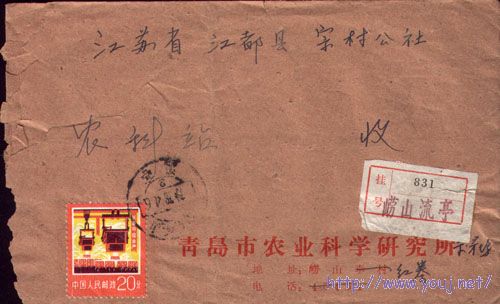 江苏省 江都县 宋村公社
农科站 收
挂号 831
崂山流亭
青岛市农业科学研究所
地址：崂山
红卷
电话：
中国人民邮政 20分
http://www.youj.net/